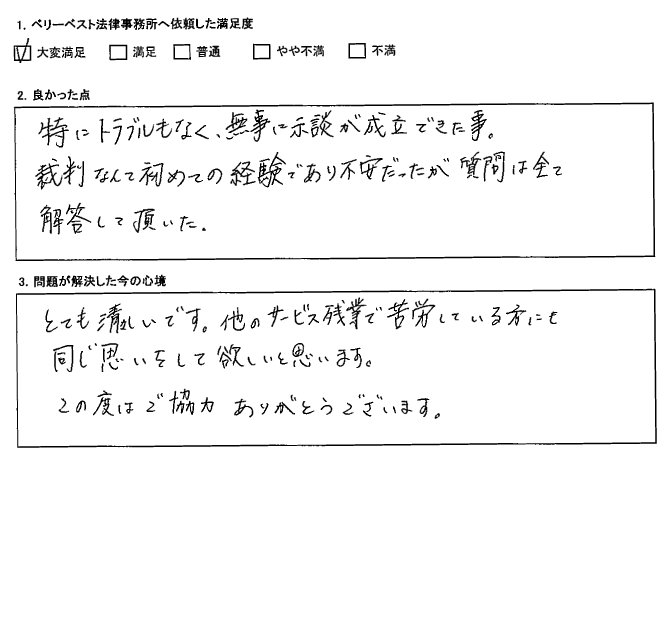 1. ベリーベスト法律事務所へ依頼した満足度
☑ 大変満足 □ 満足 □ 普通 □ やや不満 □ 不満
2. 良かった点
特にトラブルもなく、無事に示談が成立できた事。
裁判なんて初めての経験であり不安だったが質問は全て
解答して頂いた。
3. 問題が解決した今の心境
とても清々しいです。他のサービス残業で苦労している方にも
同じ思いをして欲しいと思います。
この度はご協力ありがとうございます。